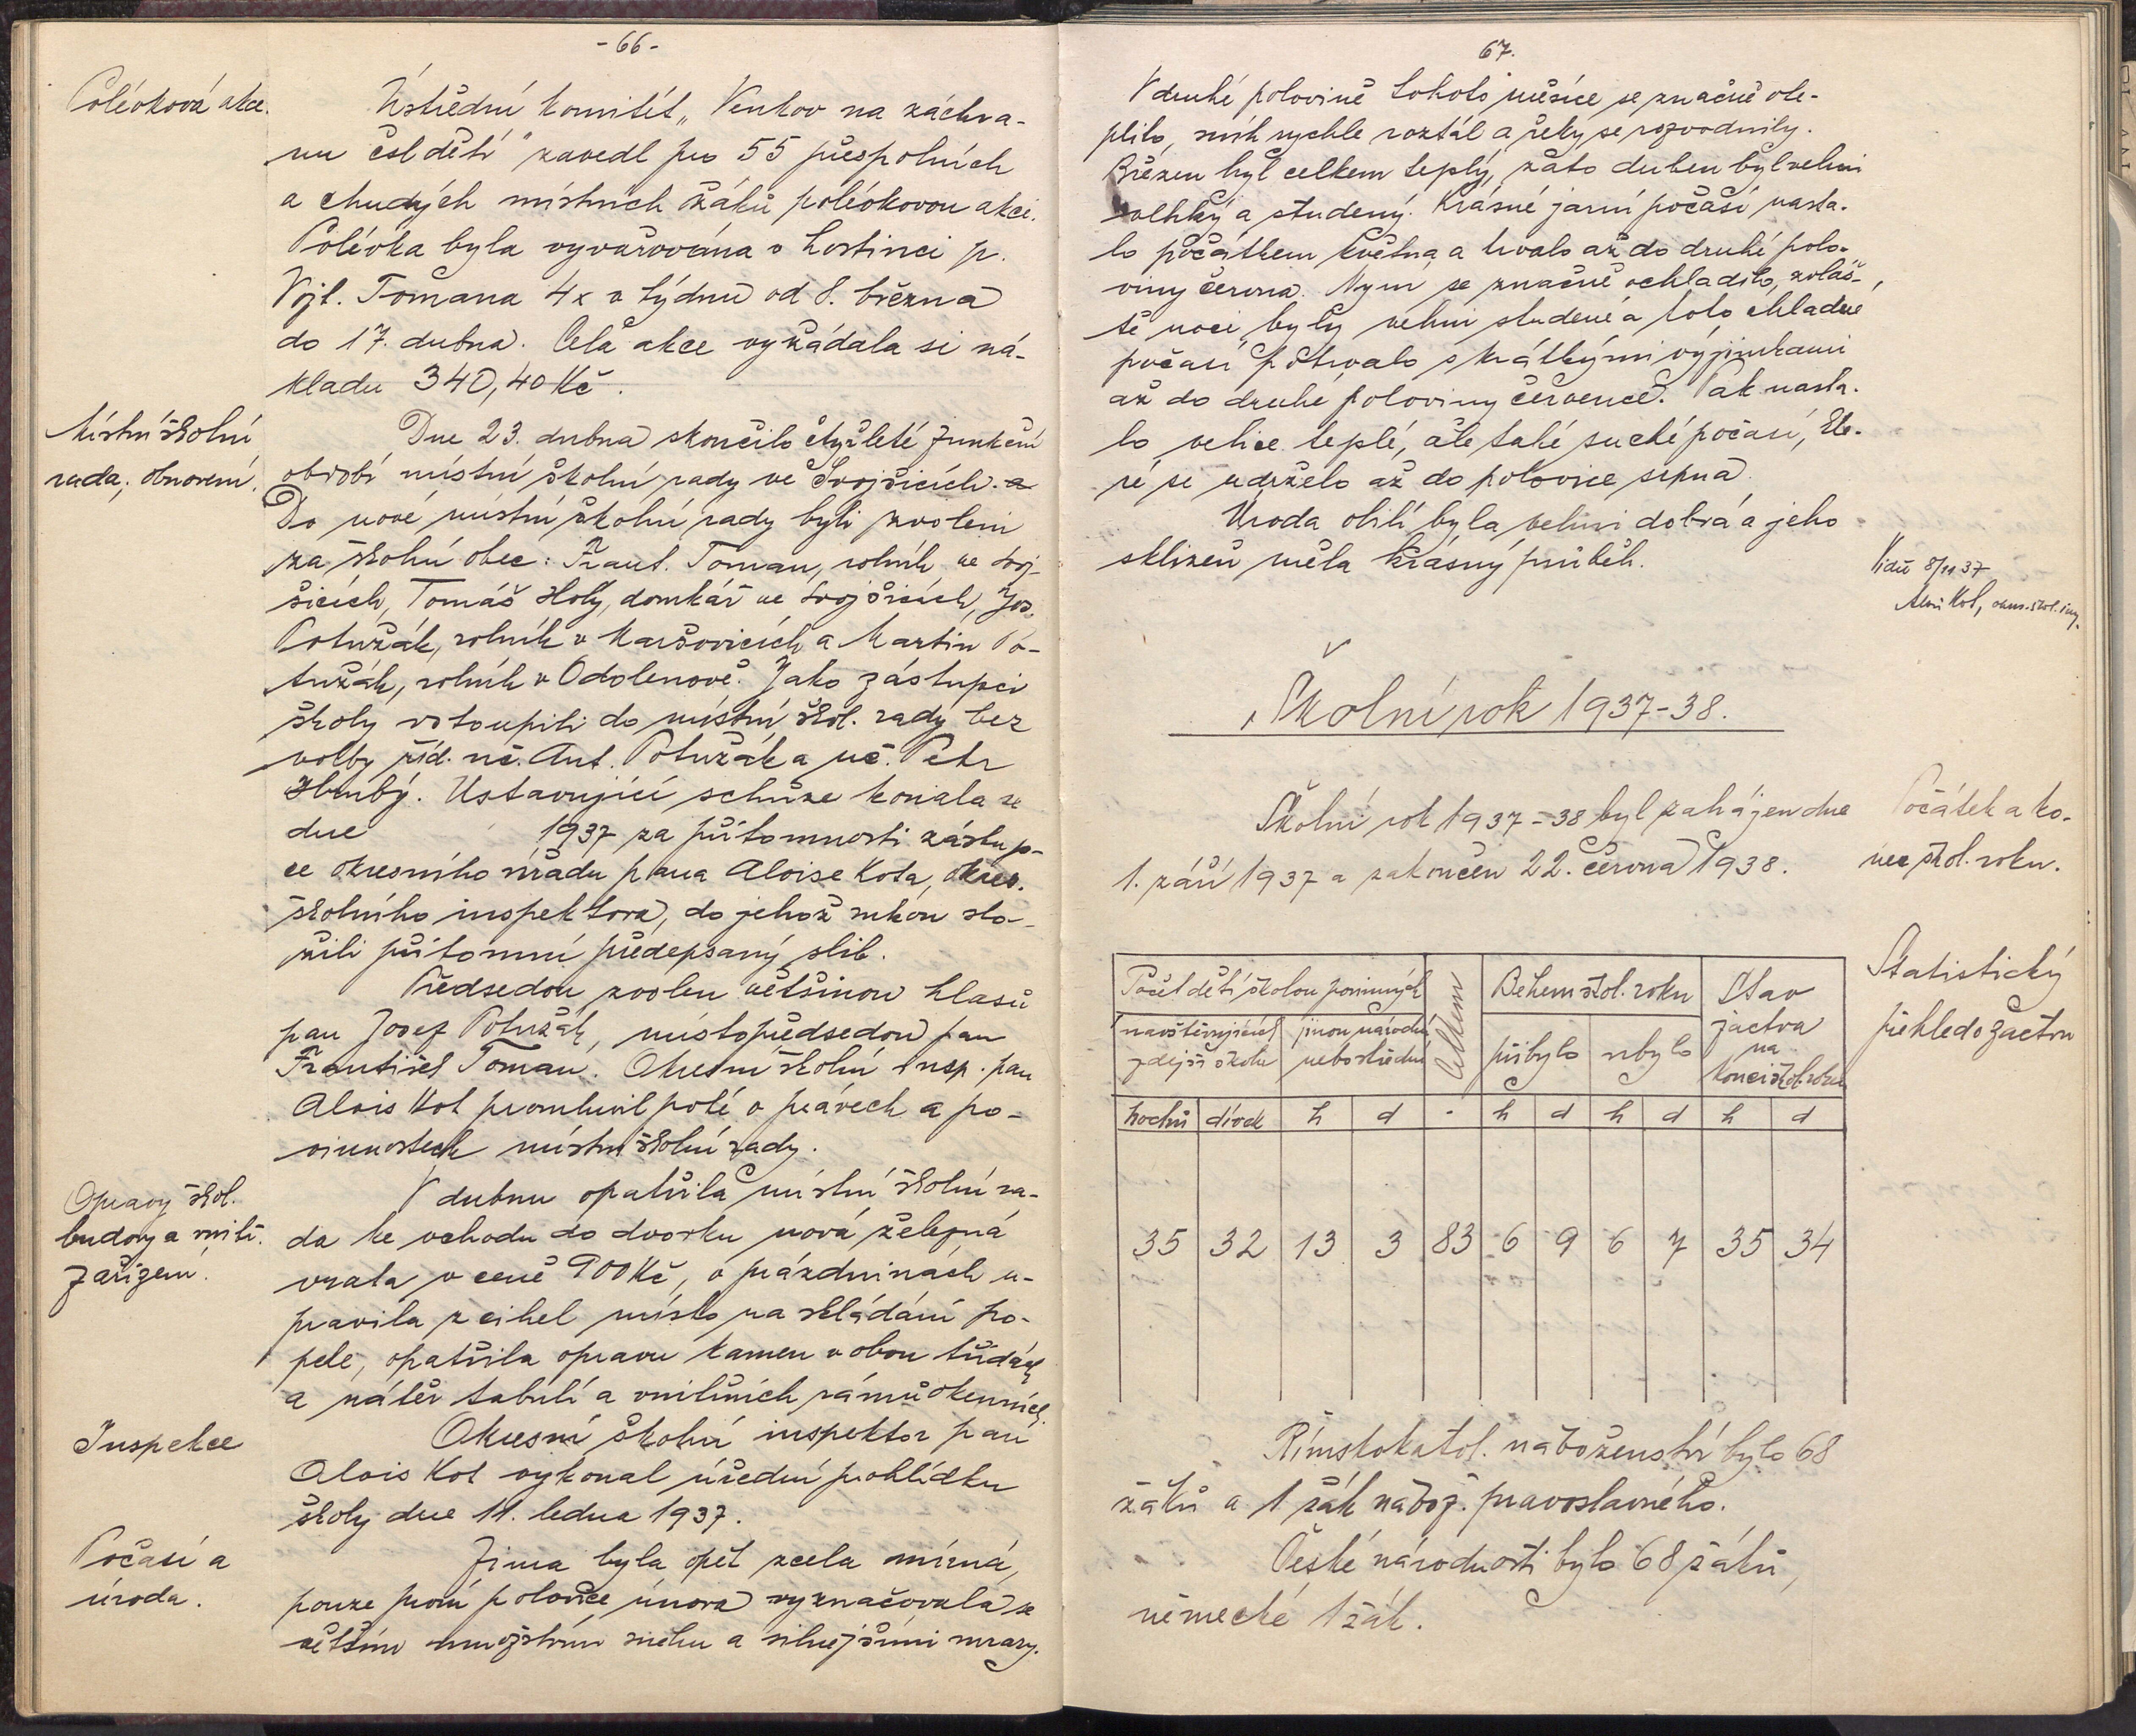 - 66 -
Polévková akce.
Ústřední komitét „Venkov na záchra-
nu čsl dětí" zavedl pro 55 přespolních
a chudých místních žáků polévkovou akci.
Polévka byla vyvařována v hostinci p.
Vojt. Tomana 4x v týdnu od 8. března
do 17. dubna. Celá akce vyžádala si ná-
kladu 340,40 Kč.
Místní školní
rada; obnovení.
Dne 23. dubna skončilo čtyřleté funkční
období místní školní rady ve Svojšicích. a
Do nové místní školní rady byli zvoleni
za školní obec: Frant. Toman, rolník ve Svoj-
šicích, Tomáš Holý, domkář ve Svojšicích, Jos.
Potužák, rolník v Maršovicích a Martin Po-
tužák, rolník v Odolenově. Jako zástupci
školy vstoupili do místní škol. rady bez
volby říd. uč. Ant. Potužák a uč. Petr
Hrubý. Ustavující schůze konala se
dne 1937 za přítomnosti zástup-
ce okresního úřadu pana Aloise Kota, okres.
školního inspektora, do jehož rukou slo-
žili přítomní předepsaný slib.
Předsedou zvolen většinou hlasů
pan Josef Potužák, místopředsedou pan
František Toman. Okresní školní insp. pan
Alois Kot promluvil poté o právech a po-
vinnostech místní školní rady.
Opravy škol.
budovy a vnitř.
zařízení.
V dubnu opatřila místní školní ra-
da ke vchodu do dvorku nová železná
vrata v ceně 900 Kč, o prázdninách u-
pravila z cihel místo na skládání po-
pele, opatřila opravu kamen v obou třídách
a nátěr tabulí a vnitřních rámů okenních.
Inspekce
Okresní školní inspektor pan
Alois Kot vykonal úřední prohlídku
školy dne 11. ledna 1937.
Počasí a
úroda.
Zima byla opět zcela mírná,
pouze první polovice února vyznačovala se
větším množstvím sněhu a silnějšími mrazy.
67.
V druhé polovině tohoto měsíce se značně ote-
plilo, sníh rychle roztál a řeky se rozvodnily.
Březen byl celkem teplý, zato duben byl velmi
vlhký a studený. Krásné jarní počasí nasta-
lo počátkem května a trvalo až do druhé polo-
viny června. Nyní se značně ochladilo, zvláš-
tě noci byly velmi studené a toto chladné
počasí potrvalo s krátkými výjimkami
až do druhé poloviny července. Pak nasta-
lo velice teplé, ale také suché počasí, kte-
ré se udrželo až do polovice srpna.
Úroda obilí byla velmi dobrá a jeho
sklizeň měla krásný průběh.
Viděl 8/11 37
Alois Kot, okres. škol. insp.
Školní rok 1937-38.
Školní rok 1937-38 byl zahájen dne
1. září 1937 a zakončen 22. června 1938.
Počátek a ko-
nec škol. roku.
Statistický
přehled o žactvu
Počet dětí školou povinných
Celkem
Během škol. roku
Stav
žactva
na
konci škol. roku
navštěvujících
zdejší školu
jinou národní
nebo střední
přibylo
ubylo
hochů dívek h d - h d h d h d
35 32 13 3 83 6 9 6 7 35 34
Římskokatol. náboženství bylo 68
žáků a 1 žák nábož. pravoslavného.
České národnosti bylo 68 žáků,
německé 1 žák.